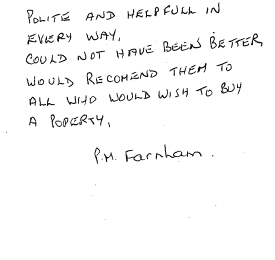 POLITE AND HELPFULL IN
EVERY WAY,
COULD NOT HAVE BEEN BETTER
WOULD RECOMEND THEM TO
ALL WHO WOULD WISH TO BUY
A POPERTY,
P.M. Farnham.